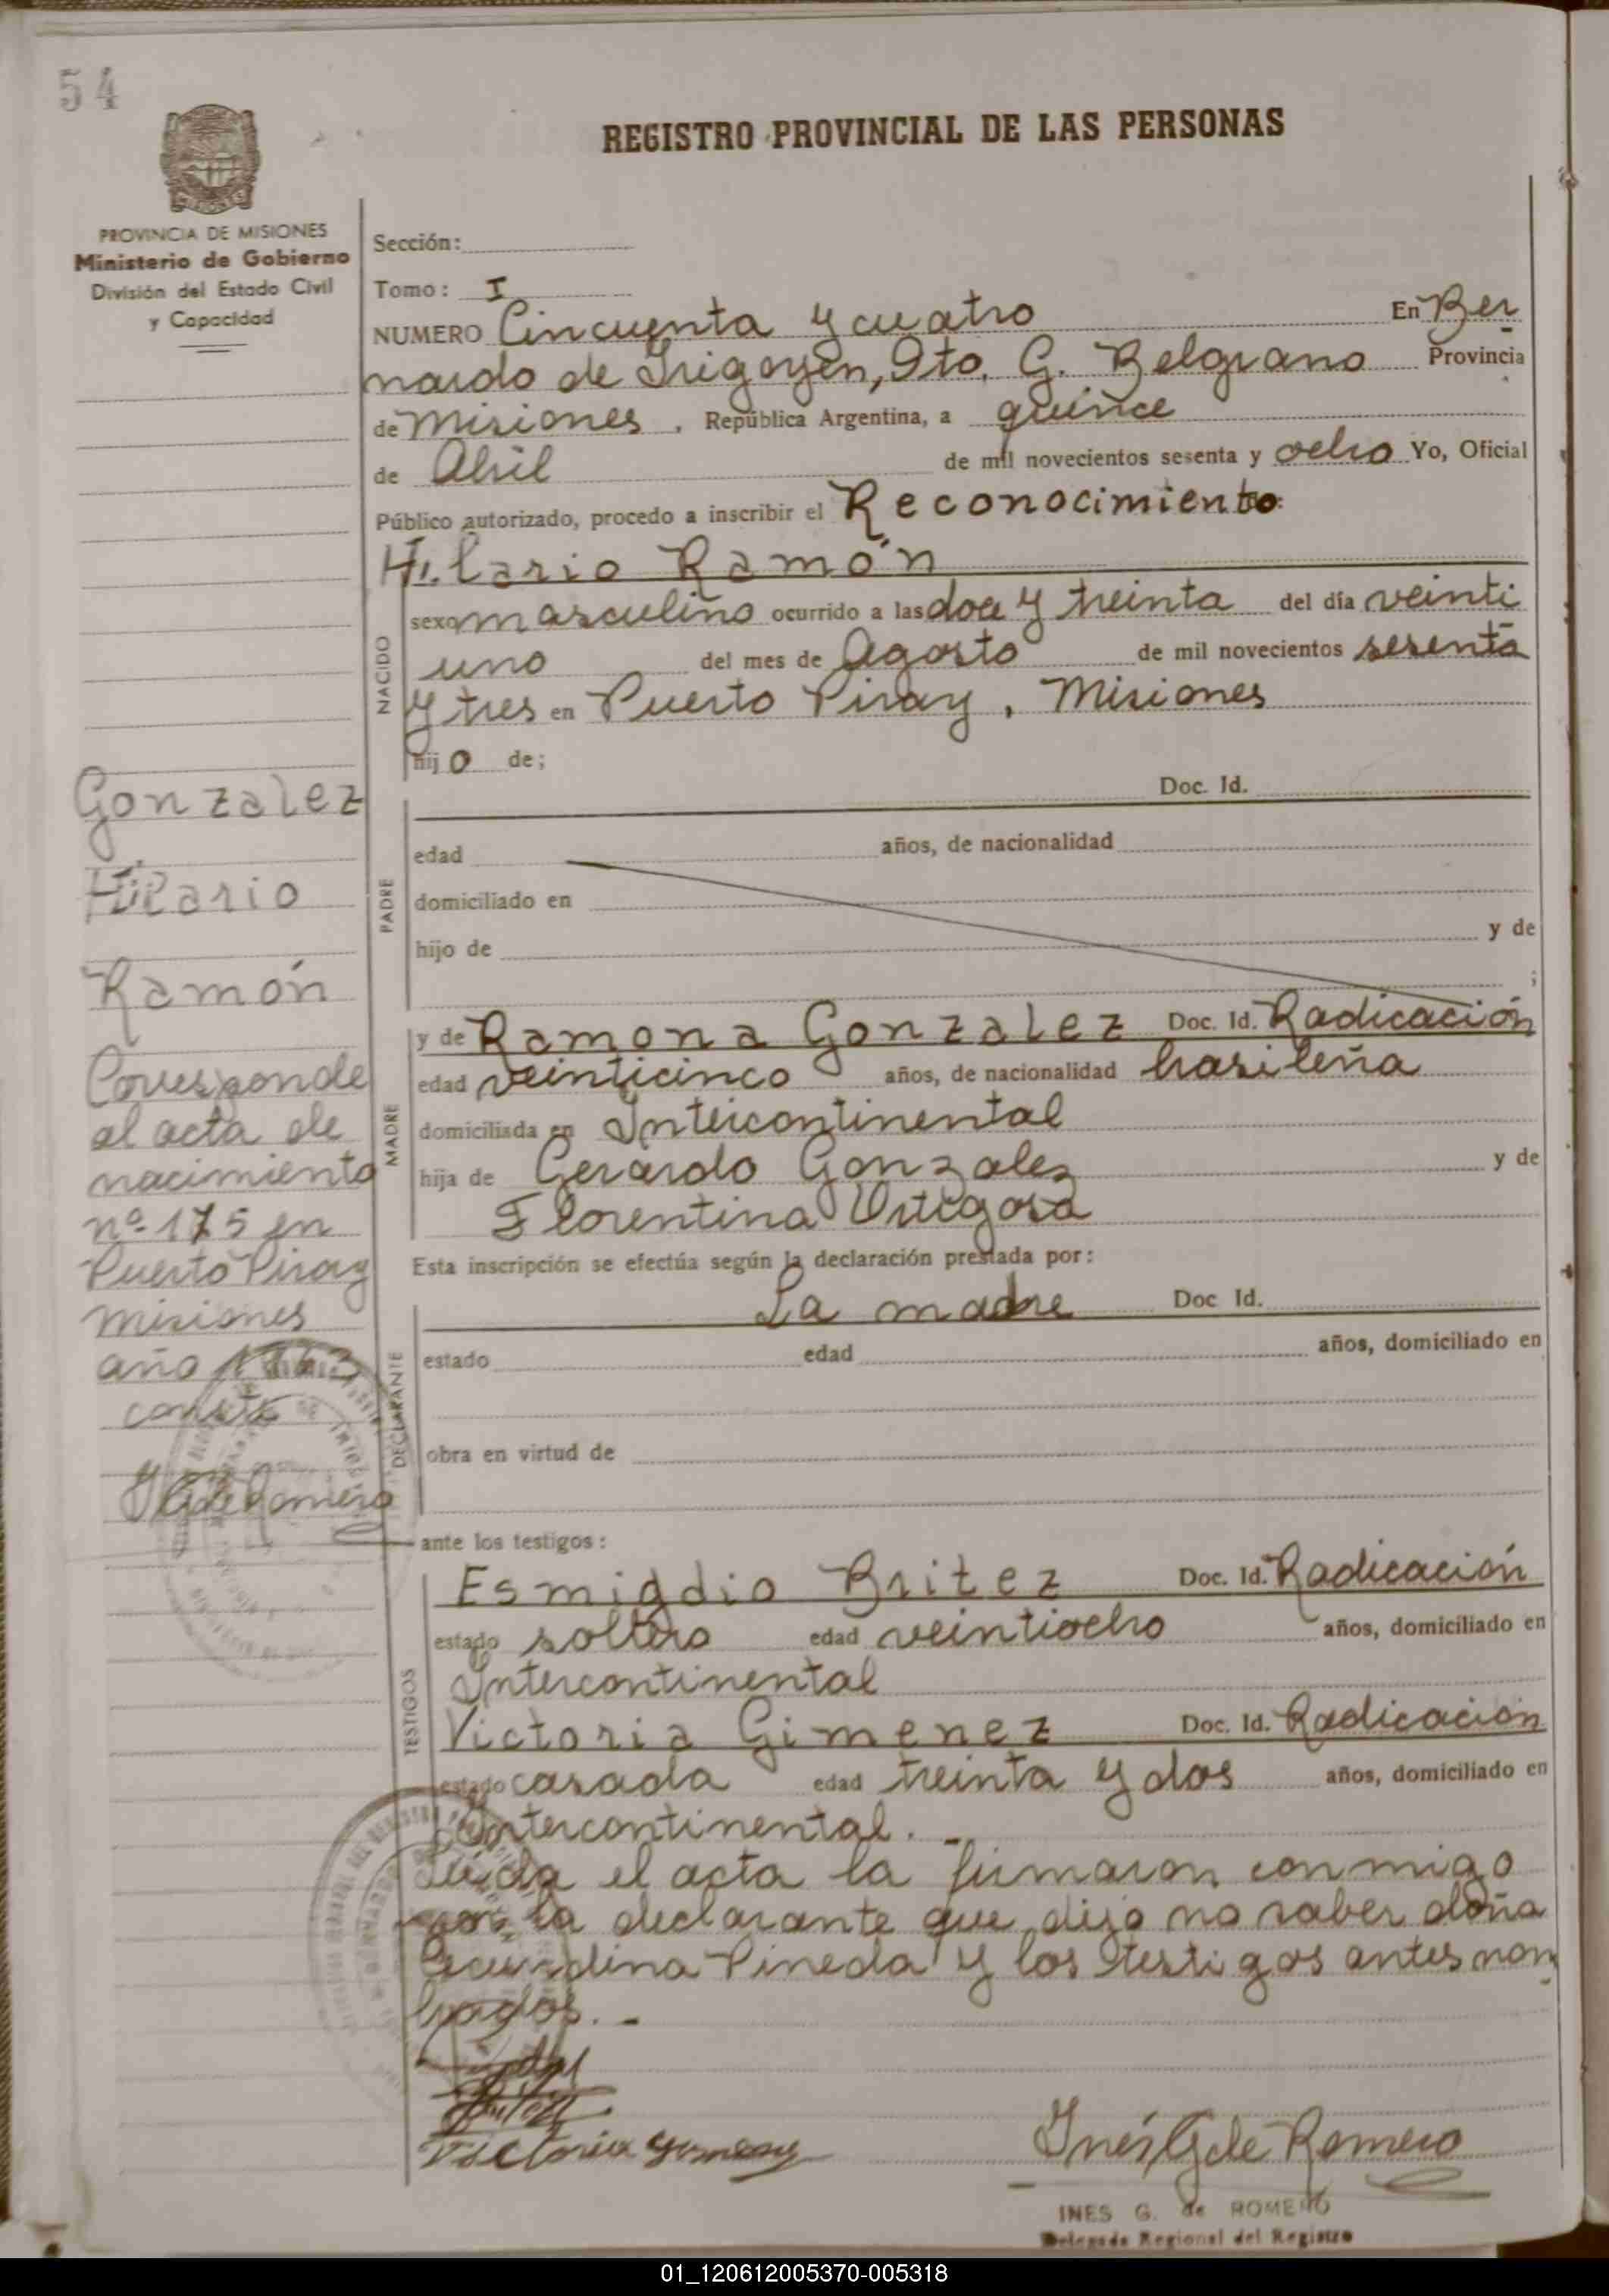 54
REGISTRO PROVINCIAL DE LAS PERSONAS
MISIONES
PROVINCIA DE MISIONES
Ministerio de Gobierno
División del Estado Civil
y Capacidad
Sección:
Tomo: I
NUMERO Cincuenta y cuatro En Ber
nardo de Irigoyen, Dto. G. Belgrano Provincia
de Misiones, República Argentina, a quince
de Abril de mil novecientos sesenta y ocho Yo, Oficial
Público autorizado, procedo a inscribir el Reconocimiento:
Hilario Ramón
NACIDO
sexo masculino ocurrido a las doce y treinta del día veinti
uno del mes de Agosto de mil novecientos sesenta
y tres en Puerto Piray, Misiones
hijo de;
Gonzalez
Hilario
Ramón
Corresponde
al acta de
nacimiento
nº 175 en
Puerto Piray
Misiones
año 1963
conste
PADRE
Doc. Id.
edad años, de nacionalidad
domiciliado en
hijo de y de
;
MADRE
y de Ramona Gonzalez Doc. Id. Radicación
edad veinticinco años, de nacionalidad brasileña
domiciliada en Intercontinental
hija de Gerardo Gonzalez y de
Florentina Ortigosa
Esta inscripción se efectúa según la declaración prestada por:
DECLARANTE
La madre Doc Id.
estado edad años, domiciliado en
obra en virtud de
ante los testigos:
TESTIGOS
Esmigdio Britez Doc. Id. Radicación
estado soltero edad veintiocho años, domiciliado en
Intercontinental
Victoria Gimenez Doc. Id. Radicación
estado casada edad treinta y dos años, domiciliado en
Intercontinental. -
Leida el acta la firmaron conmigo
por la declarante que dijo no saber doña
Secundina Pineda y los testigos antes nom
brados. -
Inés G de Romero
INES G. de ROMERO
Delegada Regional del Registro
01_120612005370-005318